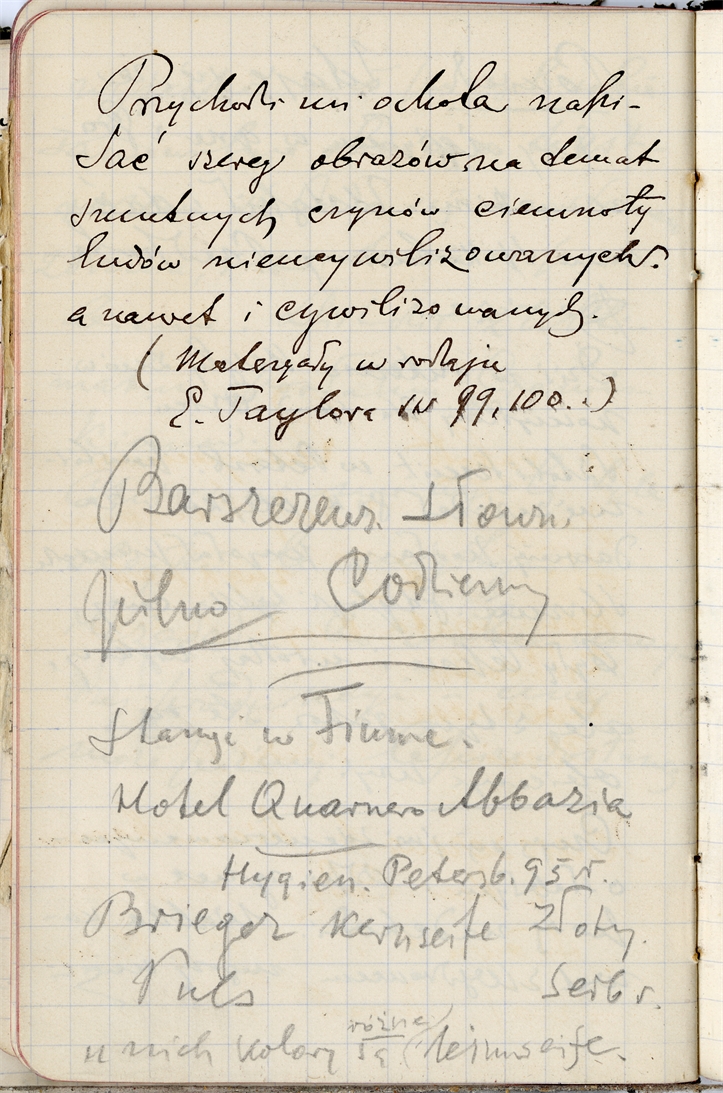 Przychodzi mi ochota napi-
sać szereg obrazów na temat
smutnych czynów ciemnoty
ludów niencywilizowanych.
a nawet i cywilizowanych.
(Materyały w rodzaju
E. Taylora 99, 100..)
Barszczews. Słown.
pilno Codzienny
Stancyi w Fiume.
Hotel Quarnero Abbazia
Hygien. Petersb. 95 r.
Brieger Kernseife Złoty.
Puls
u nich kolory różne są (leimseife.